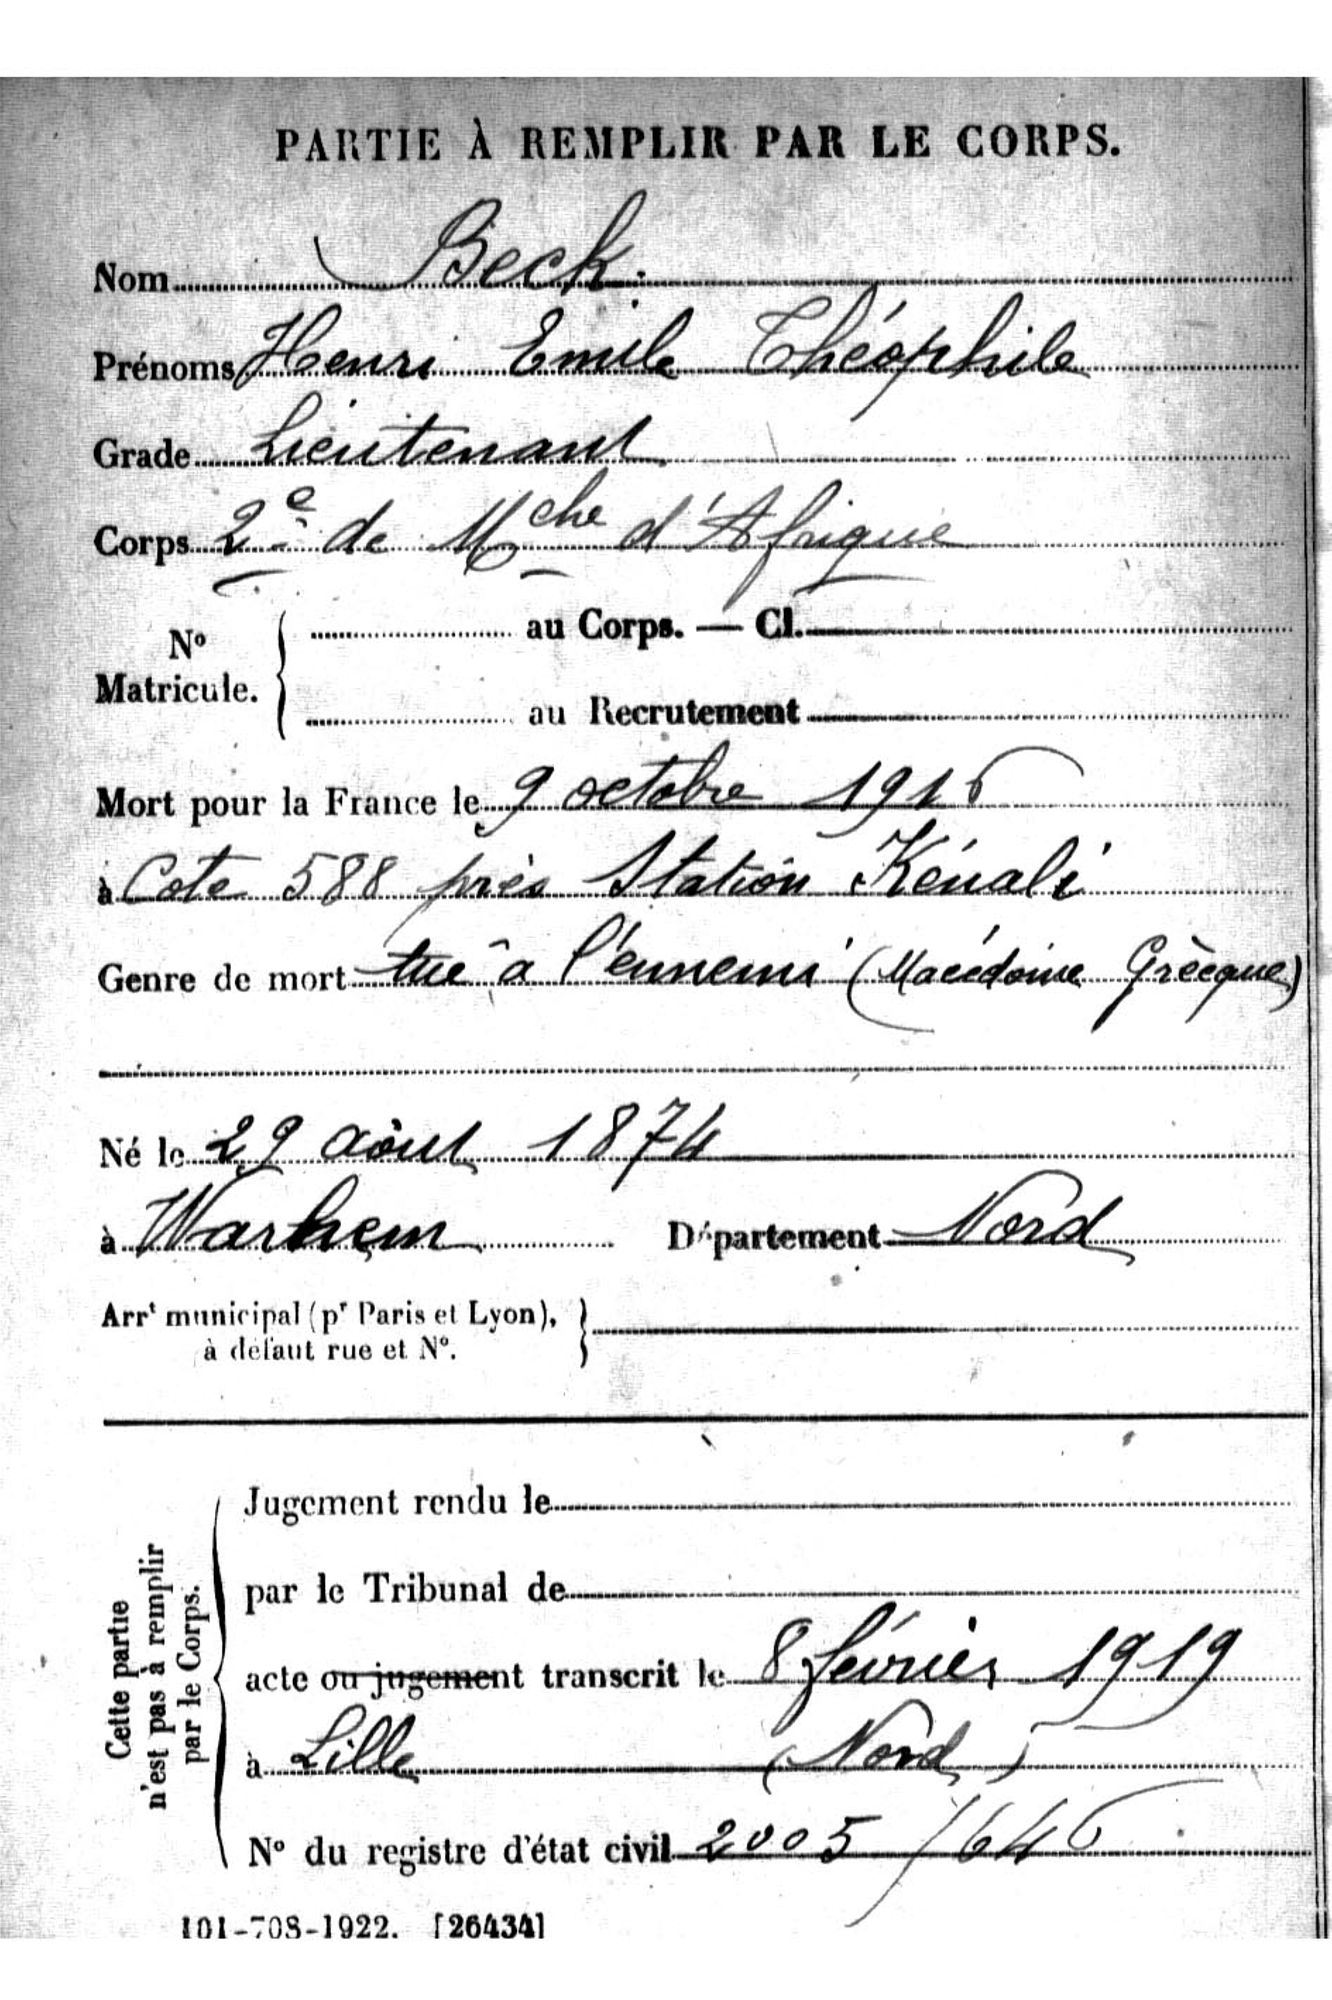 PARTIE À REMPLIR PAR LE CORPS.
Nom Beck
Prénoms Henri Emile Théophile
Grade Lieutenant
Corps 2e de Mche d'Afrique
No Matricule. { au Corps. — Cl.
au Recrutement
Mort pour la France le 9 octobre 1916
à Cote 588 près Station Kénali
Genre de mort tué à l'ennemi (Macédoine Grècque)
Né le 29 août 1874
à Warhem Département Nord
Arrt municipal (pr Paris et Lyon),
à défaut rue et No.
Cette partie
n'est pas à remplir
par le Corps.
Jugement rendu le
par le Tribunal de
acte ou jugement transcrit le 8 février 1919
à Lille (Nord)
No du registre d'état civil 2005/646
101-708-1922. [26434]